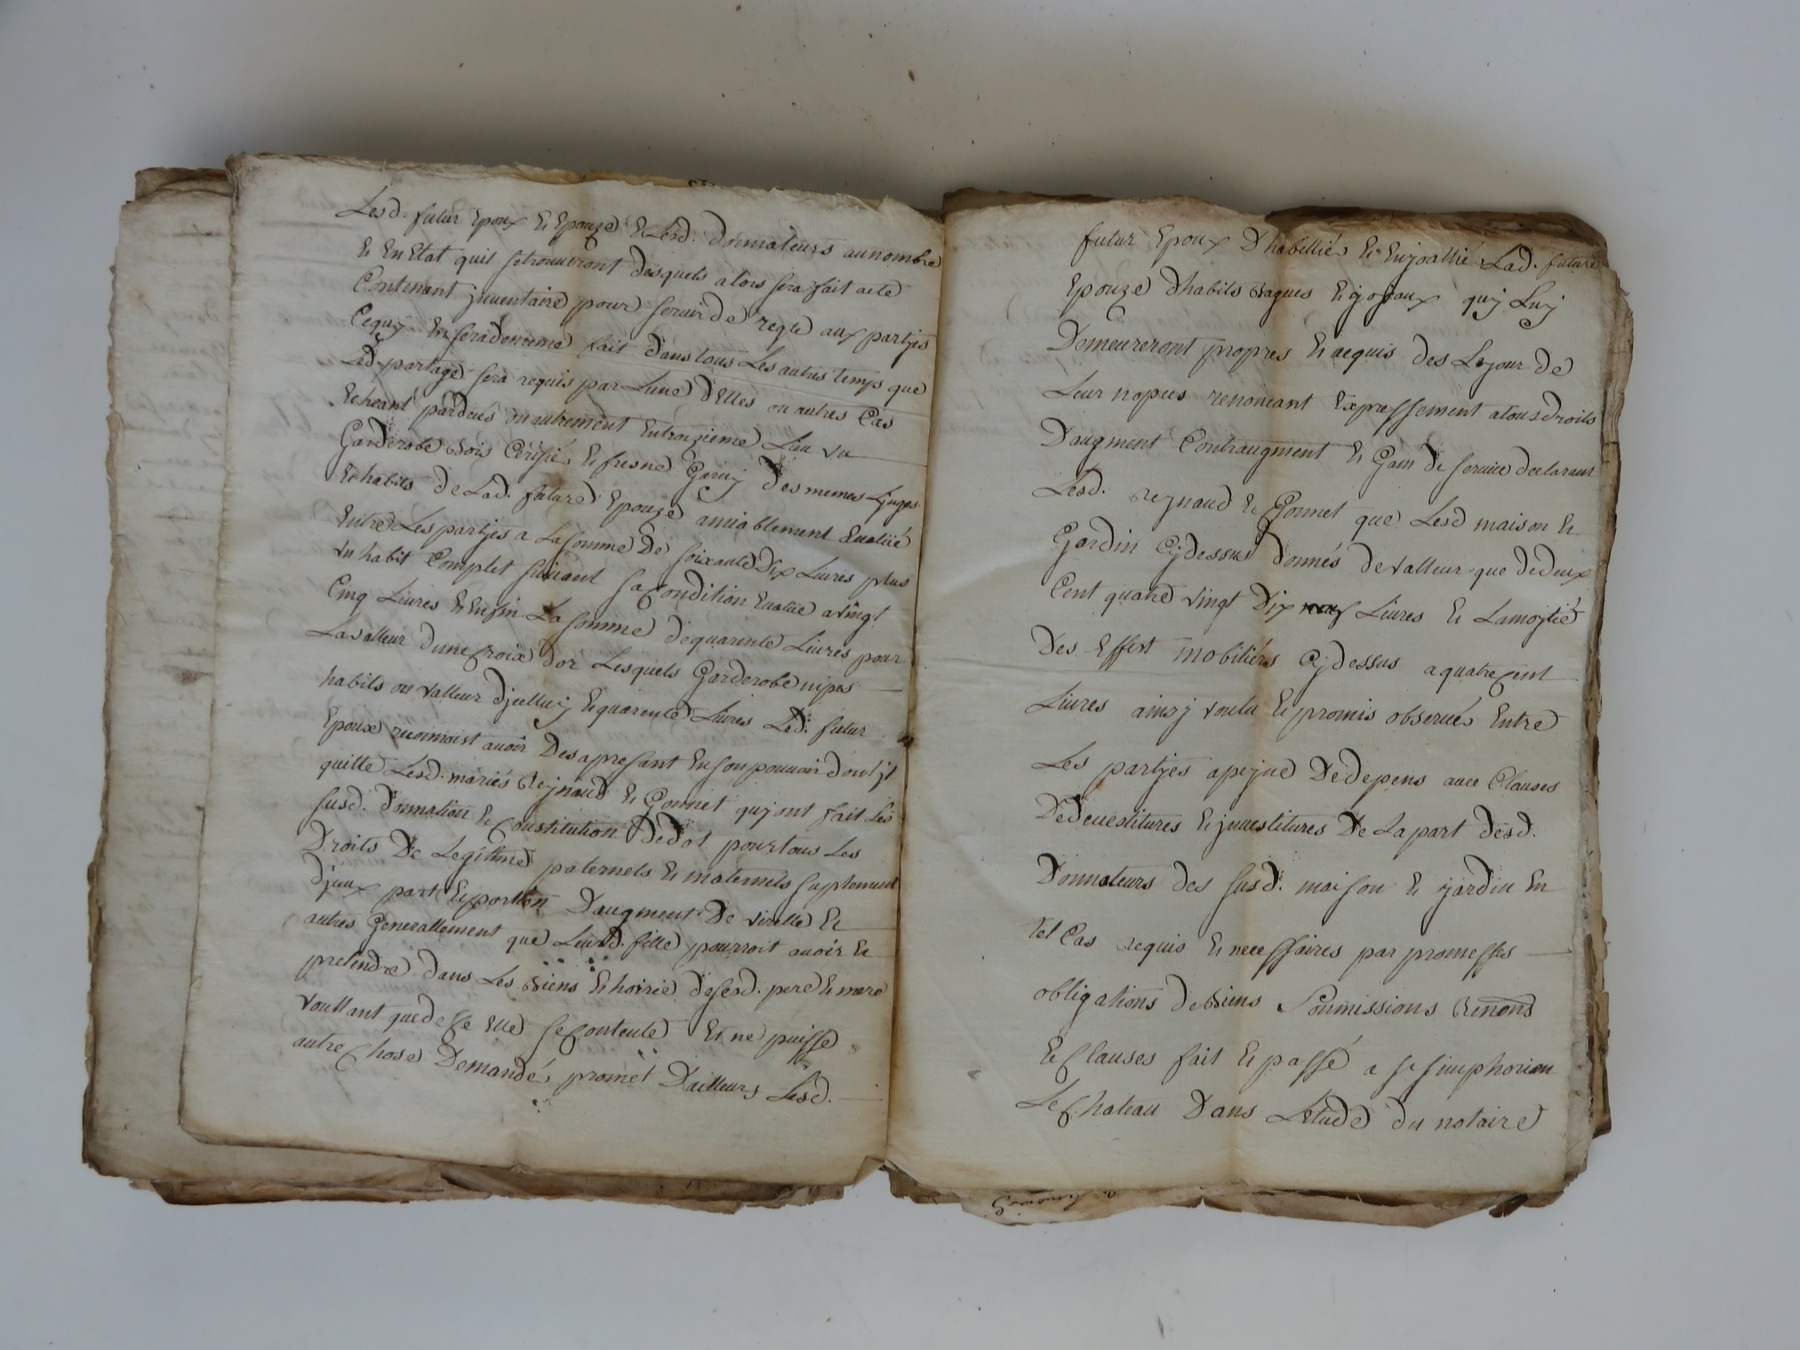 Lesd. futur Epoux & Epouze & Lesd. donnateurs aunombre
& En Etat quil setrouueront desquels alors sera fait acte
Contenant jnuentaire pour seruir de regle aux partjes
Cequy En sera demême fait dans tous Les autres temps que
Led. partage sera requis par Lune d'Elles ou autres Cas
Echeant pardeués ou autrement Entroizieme Lieu vn
Garderobe Bois Cérisié & fresne Garnj des memes Ljnges
& habits de Lad. future Epouze amiablement Eualué
Entre Les partjes a La somme De soixante Dix Liures plus
vn habit Complet suiuant sa Condition Eualué a vingt
Cinq Liures & Enfin La somme de quarente Liures pour
La valleur dune Croix d'or Lesquels Garderobe nipes
habits ou valleur djcelluj & quarente Liures Led. futur
Epoux reconnoist auoir Des apresant En son pouuoir dont jl
quitte Lesd. mariés Reynaud & Gonnet quj ont fait Les
susd. Donnation & Constitution De dot pour tous Les
Droits De Legitime paternels & maternels suplement
djceux part & portion D'augment De virille &
autres Generallement que Leurd. fille pourroit auoir &
pretendre dans Les Biens & hoirie de sesd. pere & mere
voullant que de ce Elle se Contente & ne puisse
autre Chose Demandé, promet D'ailleurs Lesd.
futur Epoux D'habillié & Enjoallié Lad. future
Epouze d'habits Bagues & joyaux quj Luj
Demeureront propres & acquis des Lejour de
Leur nopces renonceant Expressement a tous droits
Daugment Contraugment & Gain de seruice declarant
Lesd. reynaud & Gonnet que Lesd maison &
Gardin Cydessus donnés de valleur que de deux
Cent quatre vingt Dix Liures & La mojtié
Des Effest mobiliérs Cydessus a quatre Cent
Liures ainsj voulu & promis obserués Entre
Les partjes apejne De depens auec Clauses
De deuestitures & jnuestitures De La part desd.
Donnateurs des susd. maison & jardin En
tel Cas requis & necessaires par promesses
obligations de Biens Soumissions Renons
& Clauses fait & passé a St Simphorien
Le Chateau Dans L'Etude du notaire